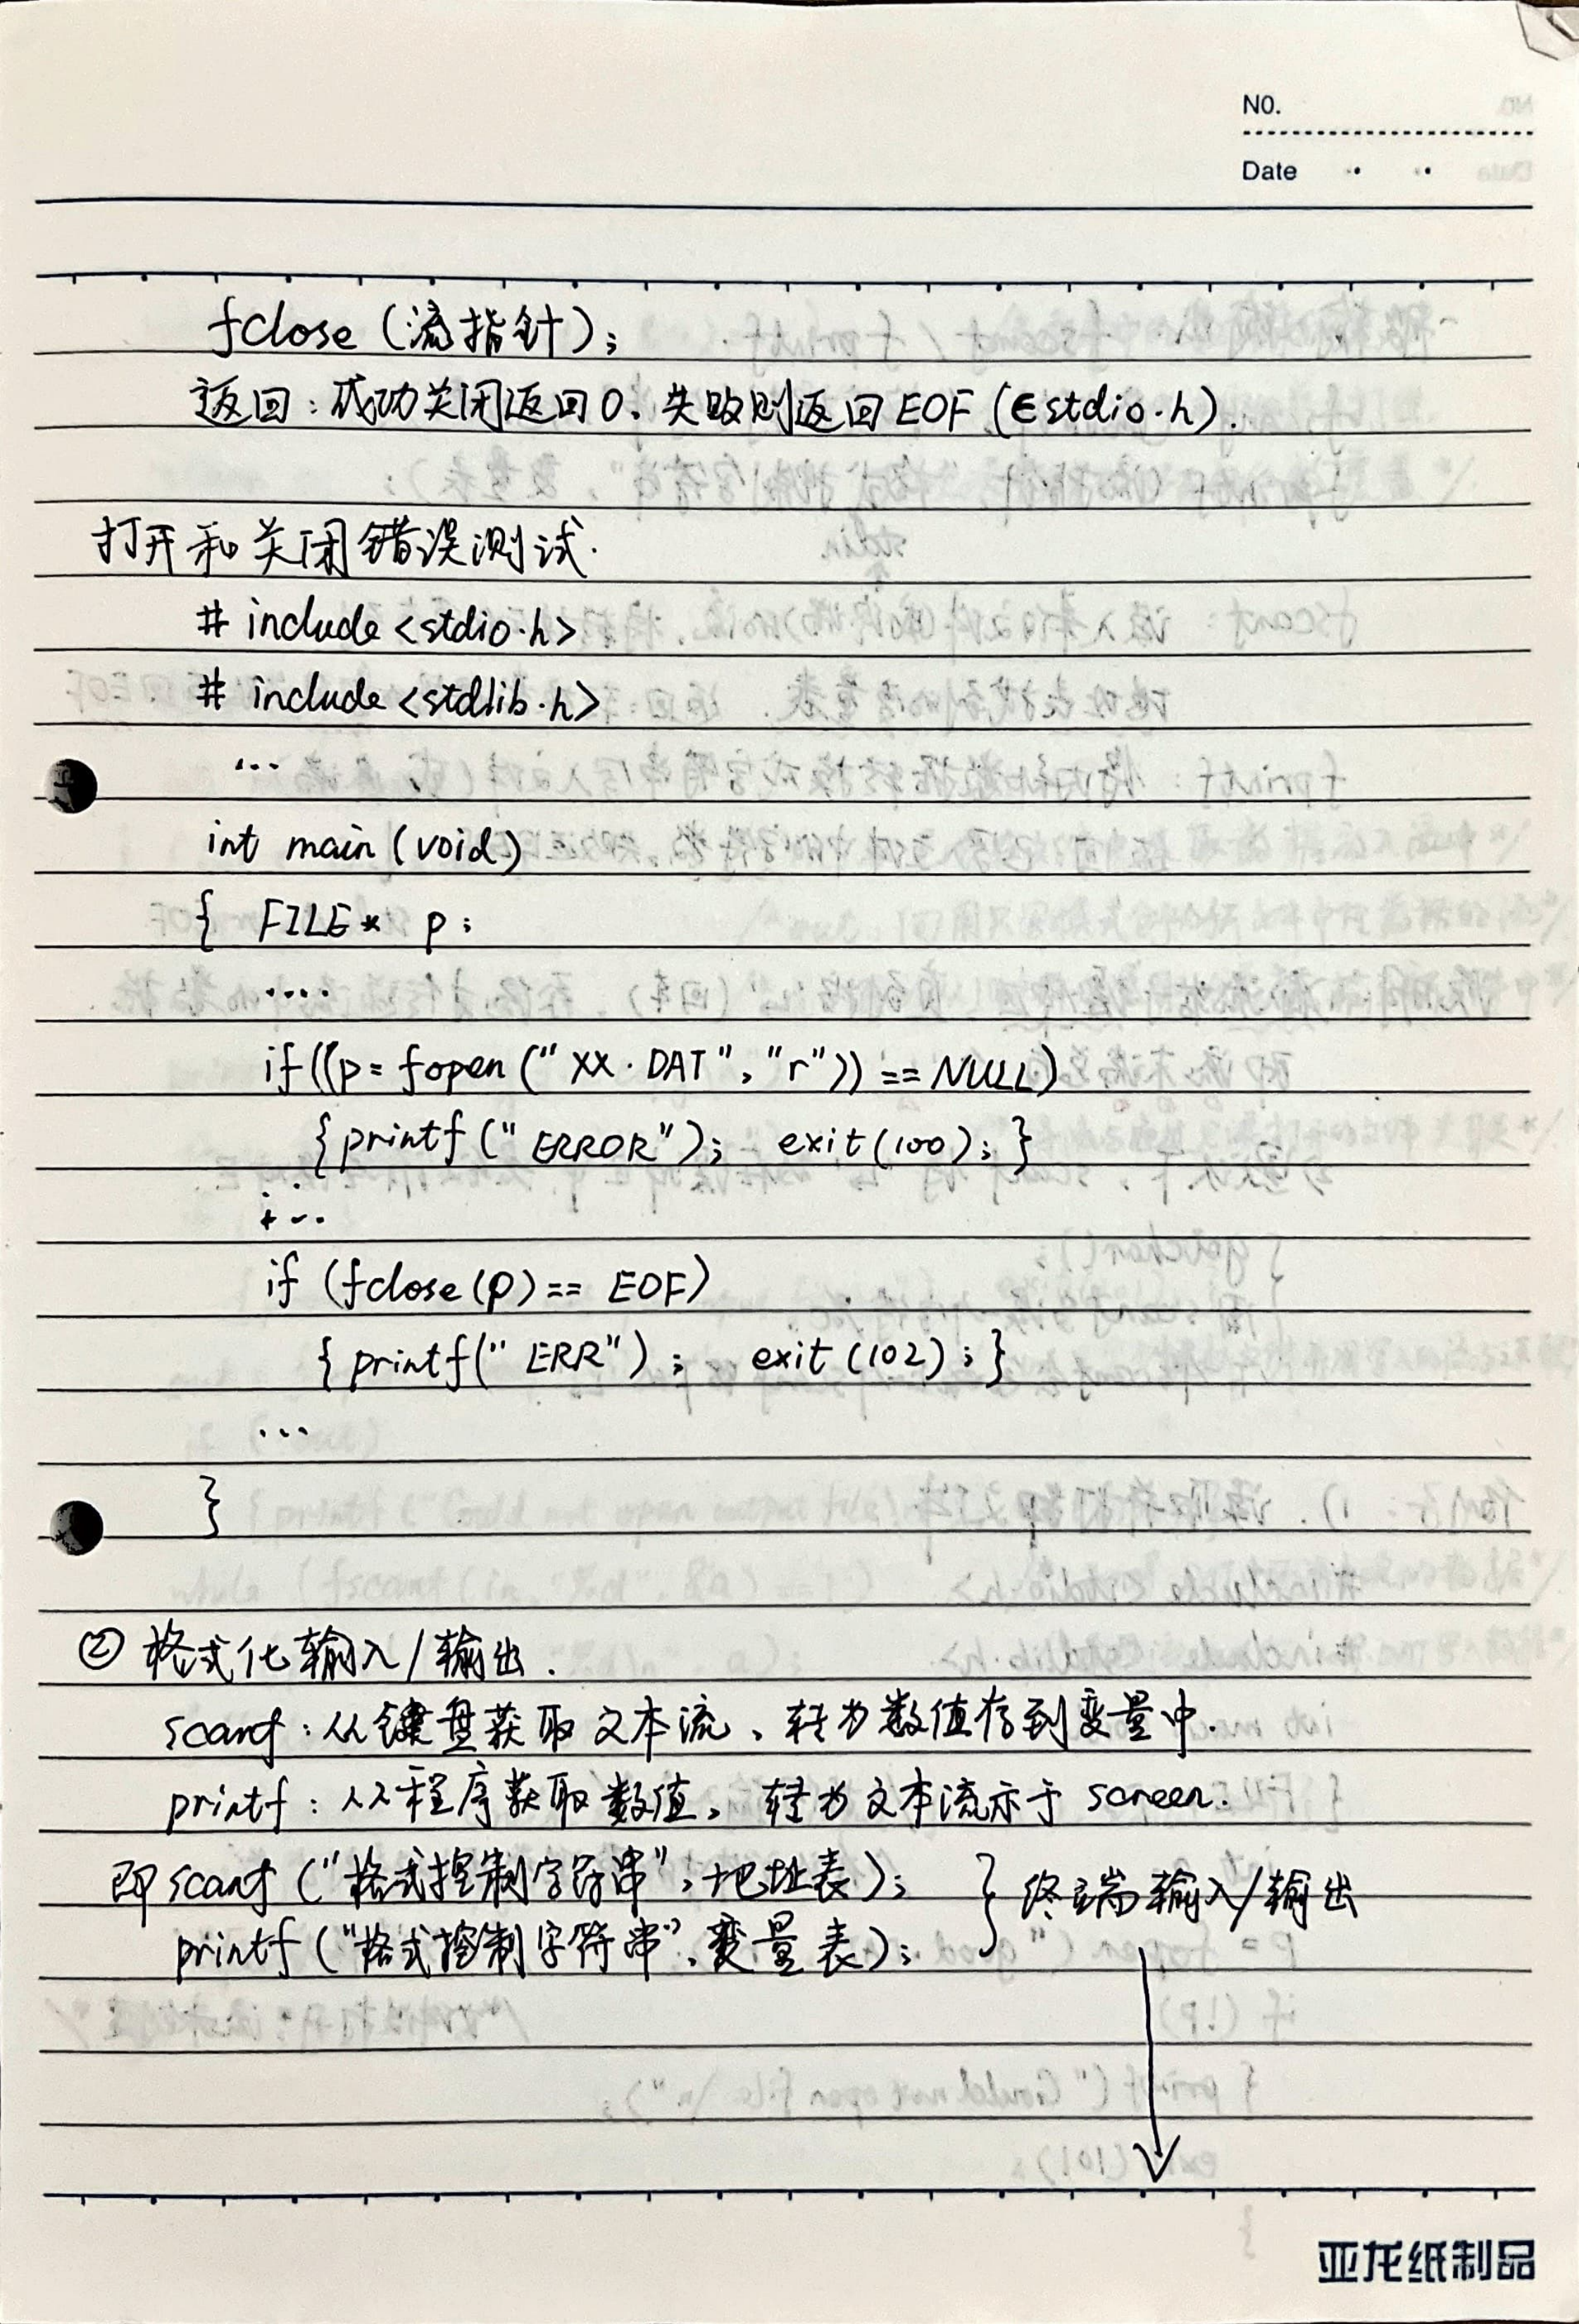 NO.
Date
fclose(流指针);
返回:成功关闭返回0,失败则返回EOF(∈stdio.h).
打开和关闭错误测试.
# include <stdio.h>
# include <stdlib.h>
...
int main (void)
{ FILE* p;
....
if((p= fopen("XX.DAT","r"))==NULL)
{printf("ERROR"); exit(100);}
...
if (fclose(p)== EOF)
{printf("ERR"); exit(102);}
...
}
② 格式化输入/输出.
scanf:从键盘获取文本流,转为数值存到变量中.
printf:从程序获取数值,转为文本流示于screen.
即scanf("格式控制字符串",地址表);
printf("格式控制字符串",变量表);
} 终端输入/输出
亚龙纸制品